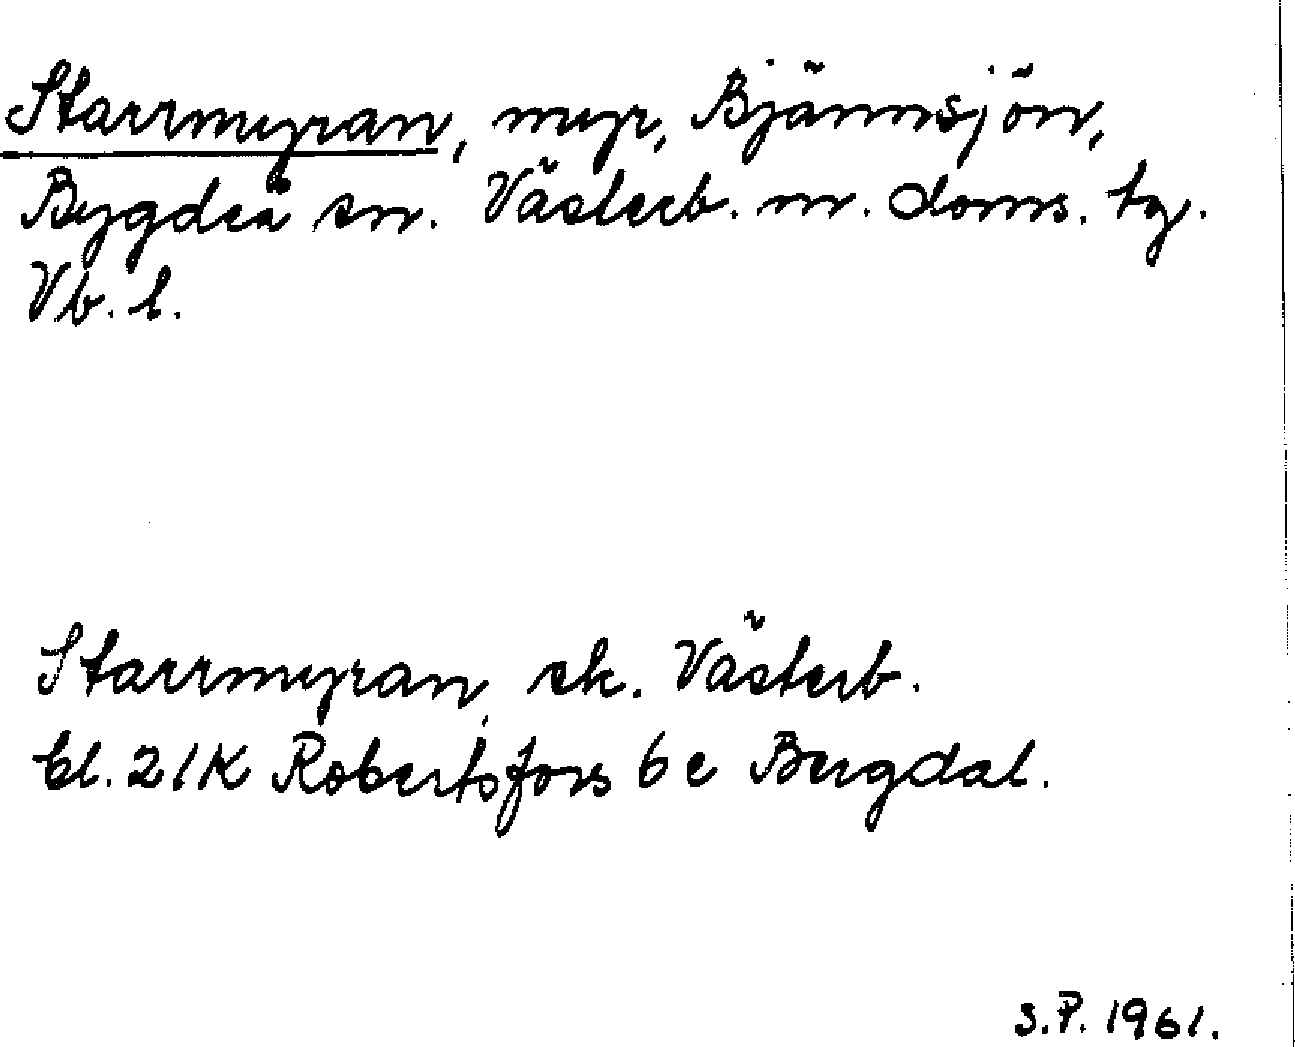 Starrmyran, myr, Bjännsjön,
Bygdeå sn. Västerb. m. doms. tg.
Vb. l.
Starrmyran, ek. Västerb.
bl. 21K Robertsfors 6 e Bergdal.
S.P. 1961.